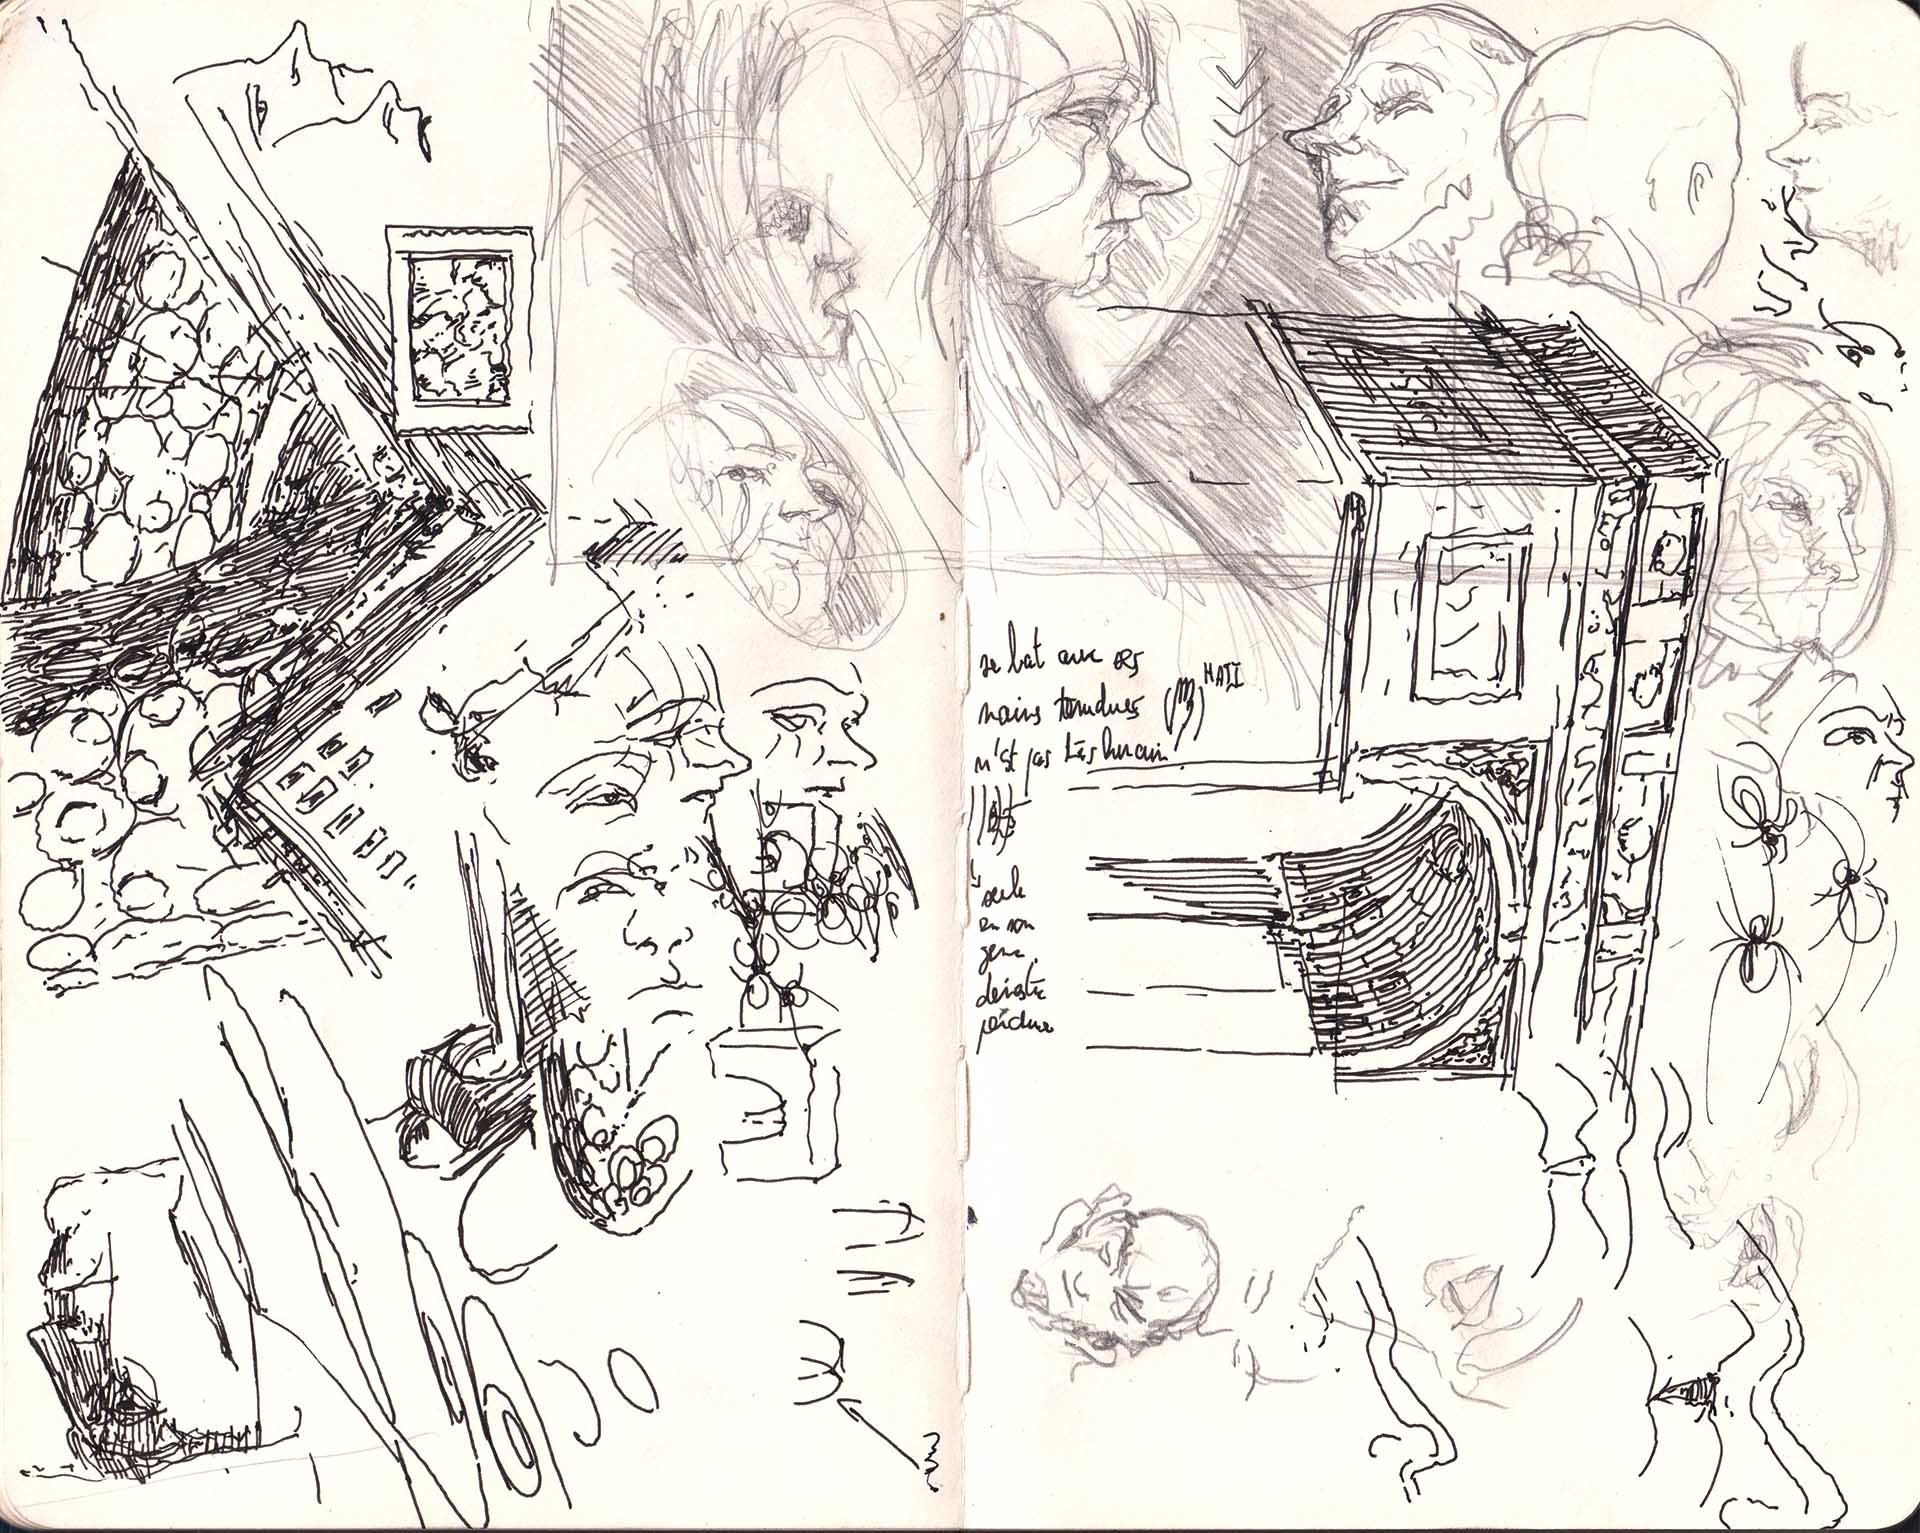 se bat avec ses
mains tendues HATI
n'est pas très humain
seule
en son
genre
dérastre
perdue